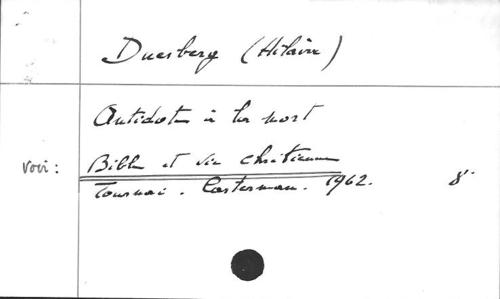 Duesberg (Hilaire)
Antidote à la mort
voir : Bible et vie chrétienne
Tournai. Casterman. 1962. 8°